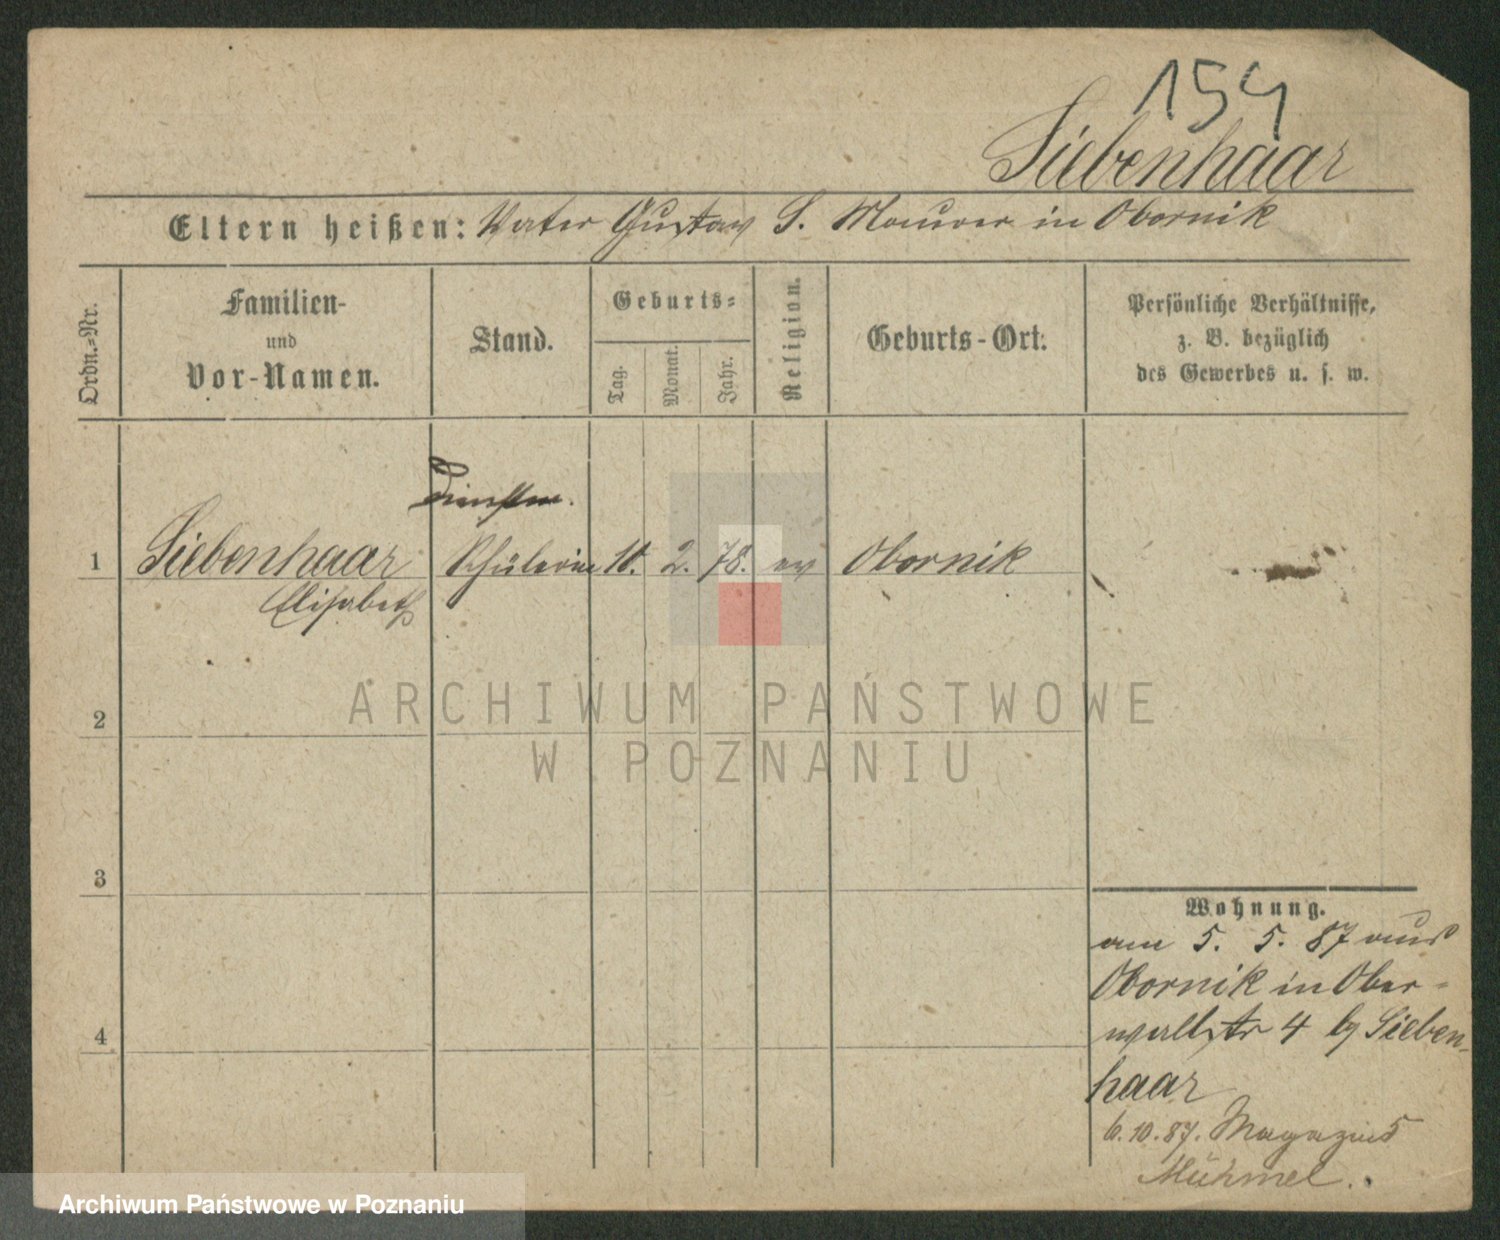 154
Siebenhaar
Eltern heißen: Vater Gustav S. Maurer in Obornik
Ordn.-Nr.
Familien-
und
Vor-Namen.
Stand.
Geburts-
Tag.
Monat.
Jahr.
Religion.
Geburts-Ort.
Persönliche Verhältnisse,
z. B. bezüglich
des Gewerbes u. s. w.
1 Siebenhaar Schülerin 10. 2. 78. ev Obornik
Elisabeth
2
3
4
Wohnung.
am 5. 5. 87 aus
Obornik in Ober-
wallstr 4 bei Sieben-
haar
6.10.87. Magazin 5
ARCHIWUM PAŃSTWOWE
W POZNANIU
Archiwum Państwowe w Poznaniu